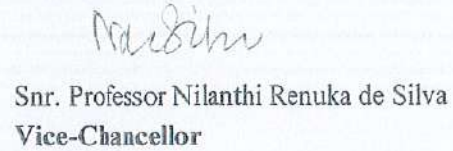 Snr. Professor Nilanthi Renuka de Silva
Vice-Chancellor